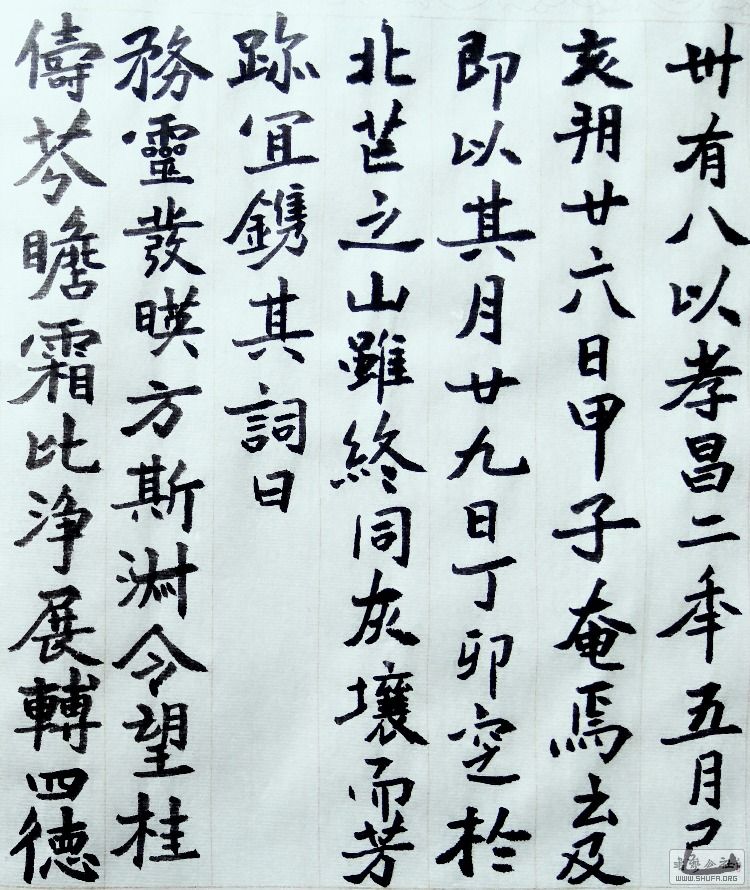 卌有八以孝昌二年五月己
亥朔廿六日甲子奄焉去及
即以其月廿九日丁卯窆於
北芒之山雖終同灰壤而芳
跡宜鐫其詞曰
務靈發暎方斯渊令望桂
儔芬瞻霜比浄展轉四德
WWW.SHUFA.ORG